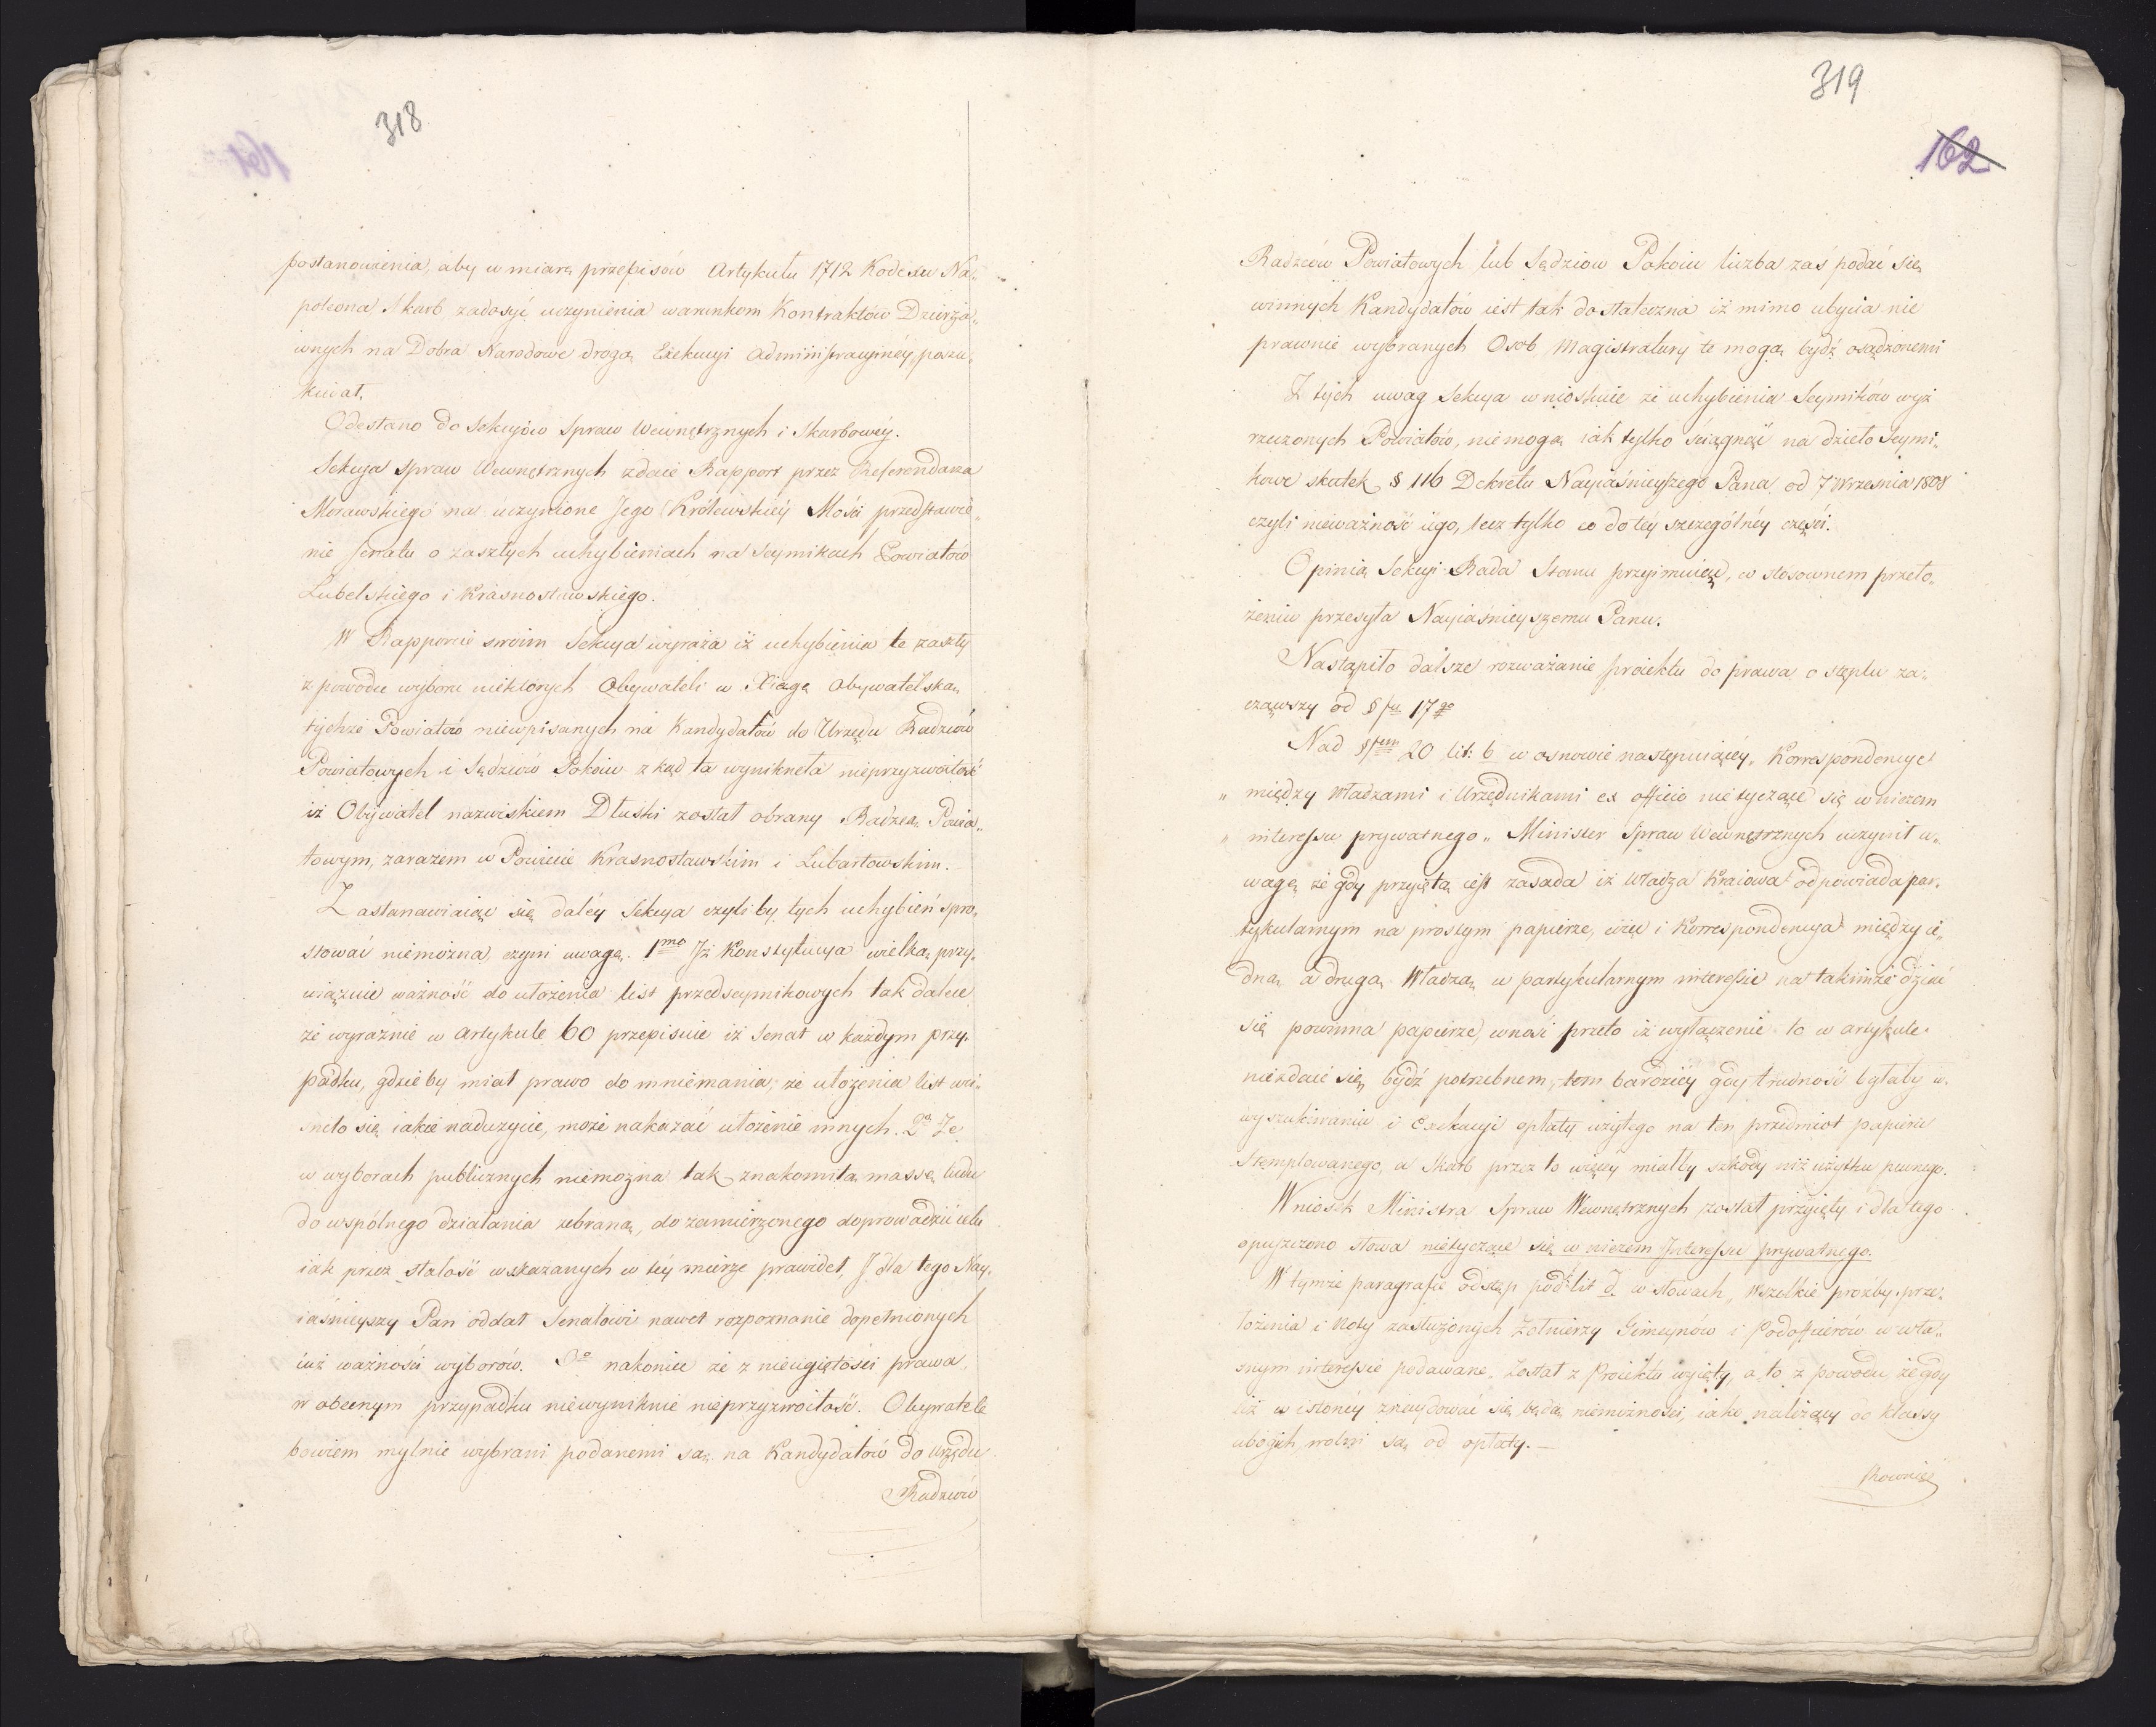 318
postanowienia, aby w miarę przepisów Artykułu 1712 Kodexu Na„
poleona Skarb zadosyć uczynienia warunkom Kontraktów Dzierża„
wnych na Dobra Narodowe drogą Exekucyi Administracyinéy poszu„
kiwał.
Odesłano do Sekcyiów Spraw Wewnętrznych i Skarbowéy.
Sekcya Spraw Wewnętrznych zdaie Rapport przez Referendarza
Morawskiego na uczynione Jego Królewskiéy Mości przedstawie„
nie Senatu o zaszłych uchybieniach na Seymikach Powiatów
Lubelskiego i Krasnostawskiego.
W Rapporcie swoim Sekcya wyraża iż uchybienia te zaszły
z powodu wyboru niektórych Obywateli w Xięgę Obywatelską
tychże Powiatów niewpisanych na Kandydatów do Urzędu Radzców
Powiatowych i Sędziów Pokoiu z kąd ta wyniknęła nieprzyzwoitość
iż Obywatel nazwiskiem Dłuski został obrany Radzcą Powia„
towym, zarazem w Powiecie Krasnostawskim i Lubartowskim.
Zastanawiaiąc się daléy Sekcya czyliby tych uchybień spro„
stować niemożna, czyni uwagę. 1mo Iż Konstytucya wielką przy„
wiązuie ważność do ułożenia list przedseymikowych tak dalece
że wyraźnie w Artykule 60 przepisuie iż Senat w każdym przy„
padku, gdzieby miał prawo do mniemania, że ułożenia list wci„
snęło się iakie nadużycie, może nakazać ułożenie innych. 2do Że
w wyborach publicznych niemożna tak znakomitą massę ludu
do wspólnego działania zebraną, do zamierzonego doprowadzić celu
iak przez stałość wskazanych w téy mierze prawideł, I dla tego Nay„
iaśnieyszy Pan oddał Senatowi nawet rozpoznanie dopełnionych
iuż ważności wyborów. 3o nakoniec że z nieugiętości prawa,
w obecnym przypadku niewyniknie nieprzyzwoitość. Obywatele
bowiem mylnie wybrani podanemi są na Kandydatów do Urzędu
Radzców
319
162
Radzców Powiatowych lub Sędziów Pokoiu liczba zaś podać się
winnych Kandydatów iest tak dostateczna iż mimo ubycia nie
prawnie wybranych Osob Magistratury te mogą bydź osądzonemi
Z tych uwag Sekcya wnioskuie że uchybienia Seymików wyż
rzeczonych Powiatów, niemogą iak tylko ściągnąć na dzieło Seymi„
kowe skutek § 116 Dekretu Nayiaśnieyszego Pana od 7 Września 1808
czyli nieważność iego, lecz tylko co do téy szczególnéy części.
Opinią Sekcyi Rada Stanu przyimuiąc, w stosownem przeło„
żeniu przesyła Nayiaśnieyszemu Panu.
Nastąpiło dalsze rozważanie proiektu do prawa o stęplu za„
cząwszy od §fu 17go
Nad §fem 20 lit: b w osnowie następuiącéy „Korrespondencye
„ między Władzami i Urzędnikami ex officio nietyczące się w niczem
„ interessu prywatnego„ Minister Spraw Wewnętrznych uczynił u„
wagę że gdy przyiętą iest zasada iż Władza Kraiowa odpowiada par„
tykularnym na prostym papierze, więc i Korrespondencya między ie„
dną a drugą Władzą w partykularnym interessie na takimże dziać
się powinna papierze, wnosi przeto iż wyłączenie to w artykule
niezdaie się bydź potrzebnem, tem bardziéy gdy trudność byłaby w
wyszukiwaniu i Exekucyi opłaty użytego na ten przedmiot papieru
Stęmplowanego, a Skarb przez to więcéy miałby szkody niż użytku pewnego.
Wniosek Ministra Spraw Wewnętrznych został przyięty i dla tego
opuszczono słowa nietyczące się w niczem Interessu prywatnego.
W tymże paragrafie odstęp pod lit d. w słowach „Wszelkie prożby, prze„
łożenia i Noty zasłużonych Żołnierzy Gimeynów i Podofficerów w wła„
snym interessie podawane„ został z Proiektu wyięty, a to z powodu że gdy
iuż w istonéy znaydować się będą niemożności, iako należący do klassy
ubogich wolni są od opłaty.—
Rownież